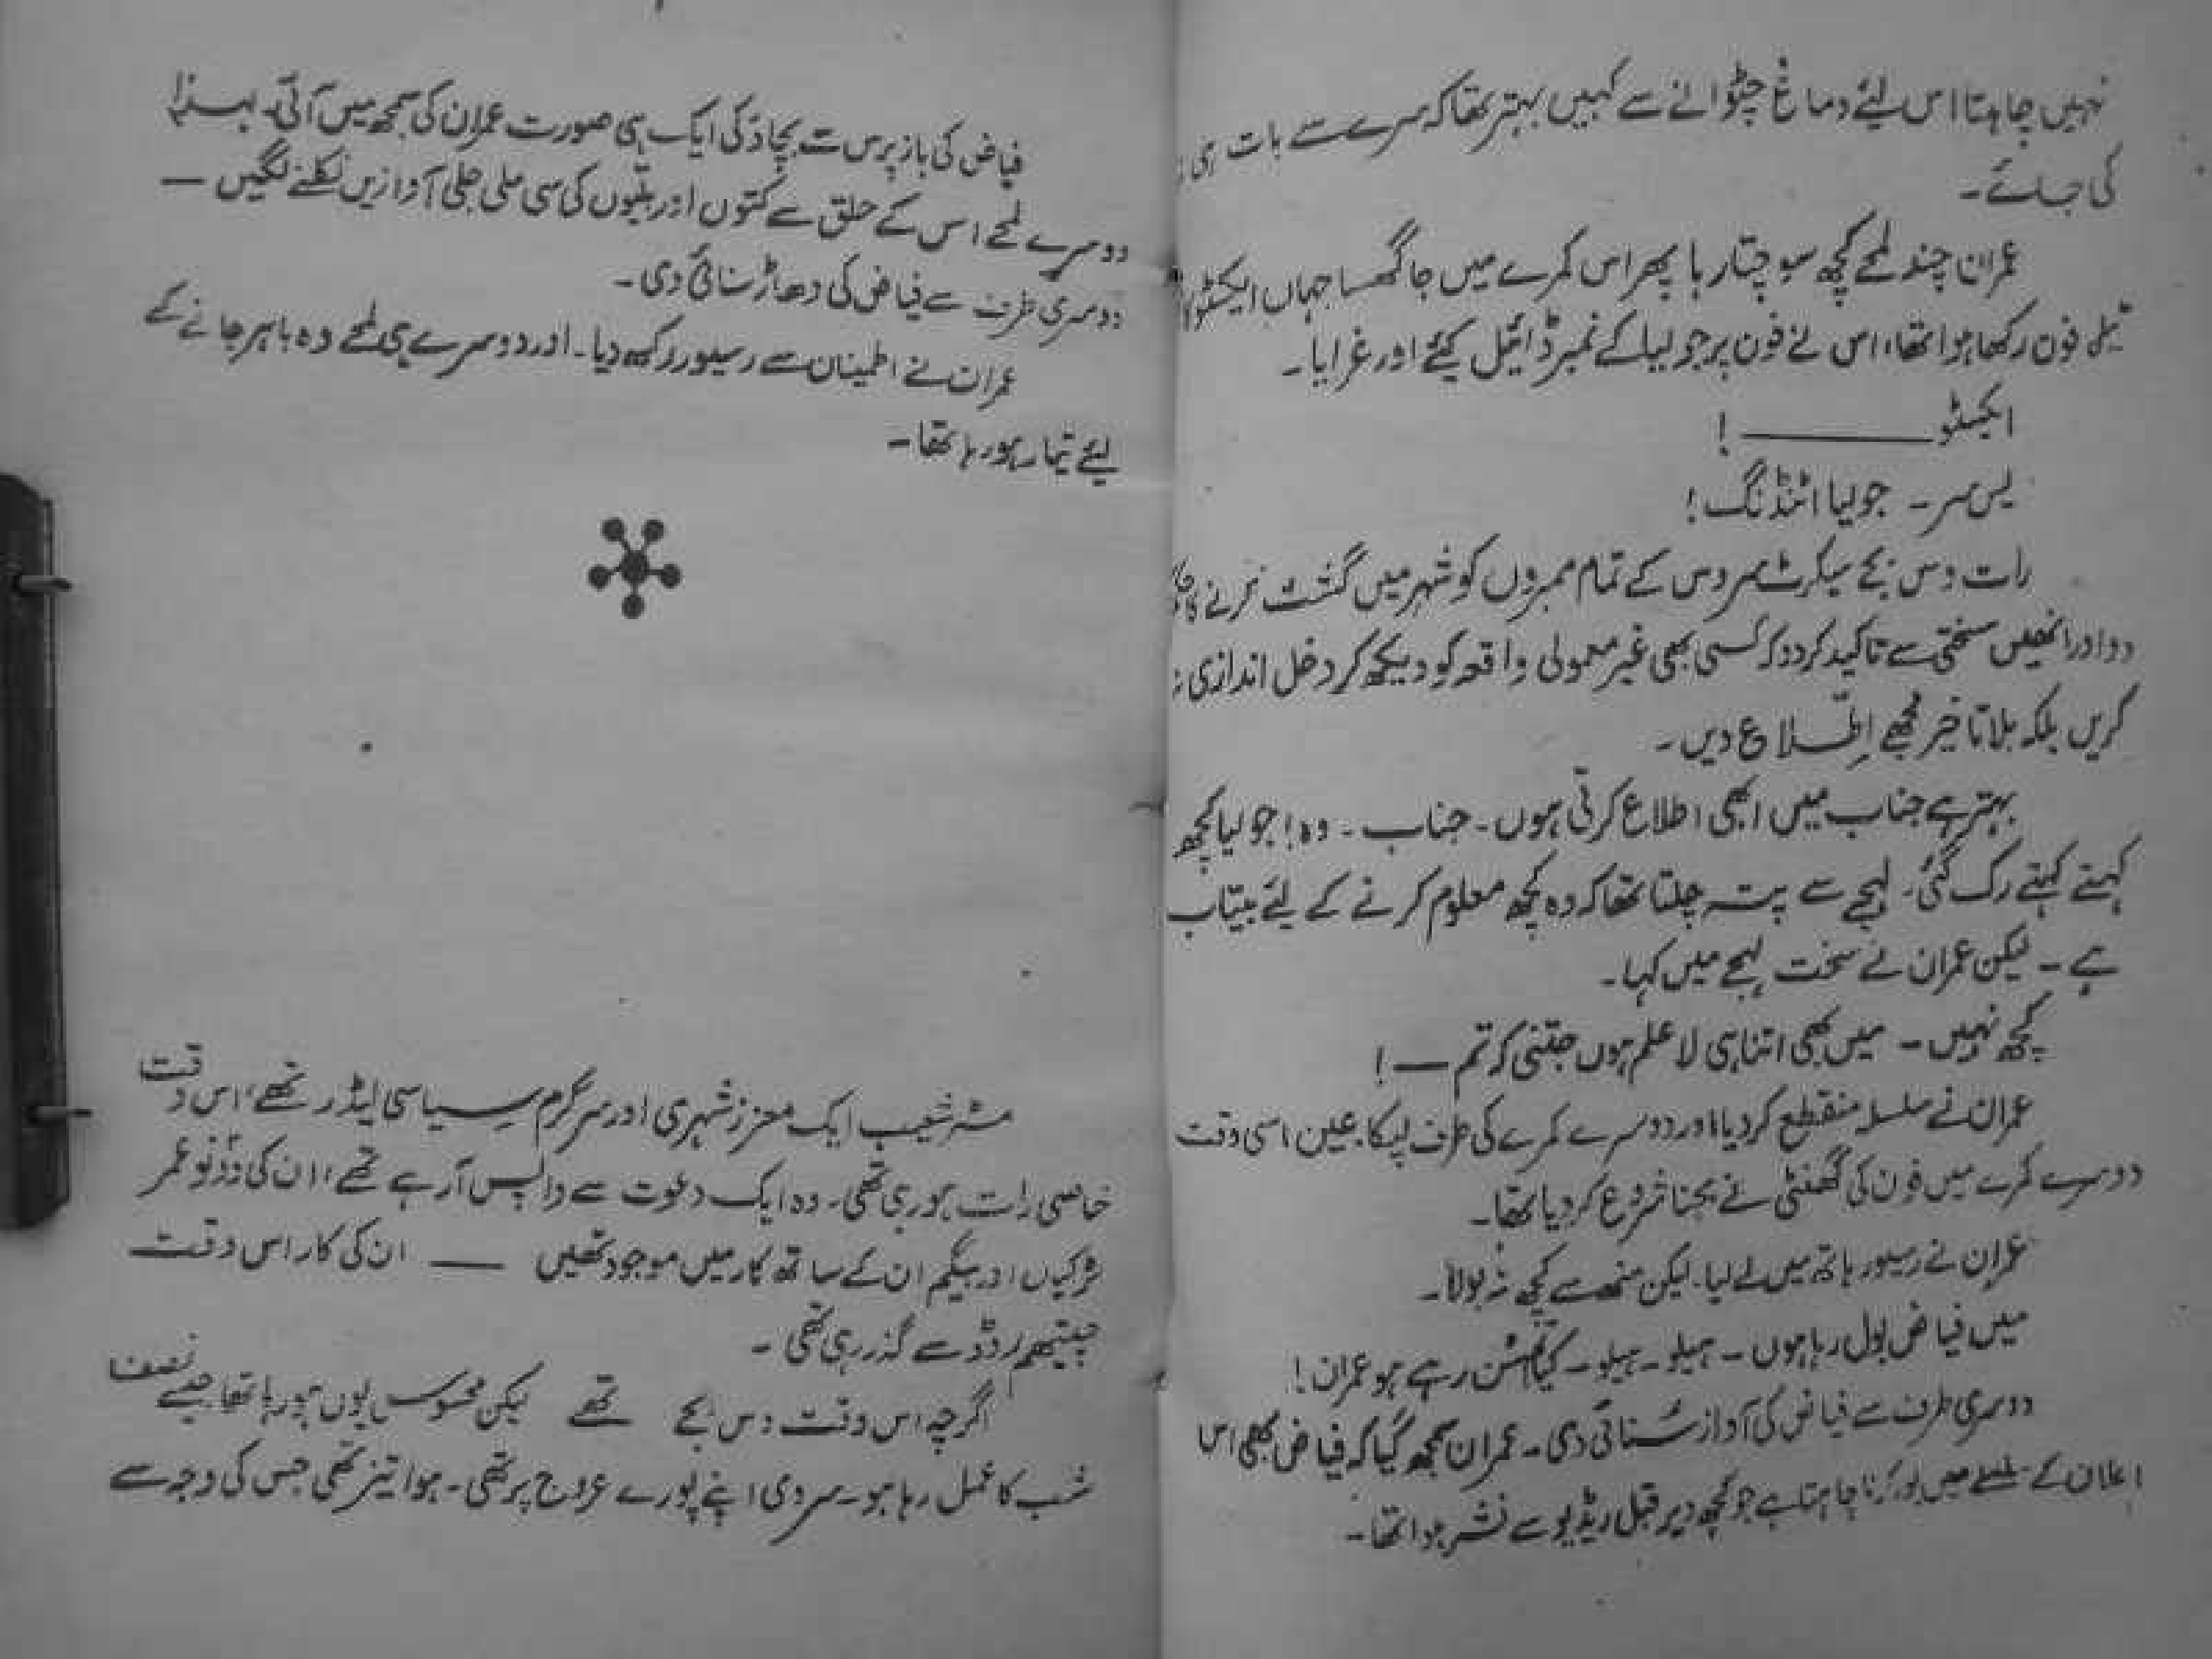 نہیں چاہتا اس لیئے دماغ چٹوانے سے کہیں بہتر تھا کہ سرے سے بات ہی
کی جائے۔
عمران چند لمحے کچھ سوچتا رہا پھر اس کمرے میں جا گھسا جہاں ایکسٹو
ٹیلی فون رکھا ہوا تھا، اس نے فون پر جولیا کے نمبر ڈائیل کیئے اور غرایا۔
ایکسٹو ـــــــــ !
یس سر۔ جولیا اٹنڈنگ!
رات دس بجے سیکرٹ سروس کے تمام ممبروں کو شہر میں گشت کرنے کا
دو اور انھیں سختی سے تاکید کر دو کہ کسی بھی غیر معمولی واقعہ کو دیکھ کر دخل اندازی
کریں بلکہ بلا تاخیر مجھے اطلاع دیں۔
بہتر ہے جناب میں ابھی اطلاع کرتی ہوں۔ جناب۔ وہ! جولیا کچھ
کہتے کہتے رک گئی۔ لہجے سے پتہ چلتا تھا کہ وہ کچھ معلوم کرنے کے لیئے بیتاب
ہے۔ لیکن عمران نے سخت لہجے میں کہا۔
کچھ نہیں۔ میں بھی اتنا ہی لا علم ہوں جتنی کہ تم ــ !
عمران نے سلسلہ منقطع کر دیا اور دوسرے کمرے کی طرف لپکا۔ عین اسی وقت
دوسرے کمرے میں فون کی گھنٹی نے بجنا شروع کر دیا تھا۔
عمران نے رسیور ہاتھ میں لے لیا۔ لیکن منھ سے کچھ نہ بولا۔
میں فیاض بول رہا ہوں۔ ہیلو۔ ہیلو۔ کیا تم سُن رہے ہو عمران!
دوسری طرف سے فیاض کی آواز سُنائی دی۔ عمران سمجھ گیا کہ فیاض بھی اس
اعلان کے سلسلے میں بور کرنا چاہتا ہے جو کچھ دیر قبل ریڈیو سے نشر ہوا تھا۔
فیاض کی باز پرس سے بچاؤ کی ایک ہی صورت عمران کی سمجھ میں آئی۔ لہٰذا
دوسرے لمحے اس کے حلق سے کتوں اور بلیوں کی سی ملی جلی آوازیں نکلنے لگیں ــ
دوسری طرف سے فیاض کی دھاڑ سنائی دی۔
عمران نے اطمینان سے رسیور رکھ دیا۔ اور دوسرے ہی لمحے وہ باہر جانے کے
لیئے تیار ہو رہا تھا۔
مسٹر شعیب ایک معزز شہری اور سرگرم سیاسی لیڈر تھے، اس وقت
خاصی رات ہو رہی تھی۔ وہ ایک دعوت سے واپس آ رہے تھے، ان کی دو نو عمر
لڑکیاں اور بیگم ان کے ساتھ کار میں موجود تھیں ــــ ان کی کار اس وقت
روڈ سے گذر رہی تھی۔
اگرچہ اس وقت دس بجے تھے لیکن محسوس یوں ہو رہا تھا جیسے نصف
شب کا عمل رہا ہو۔ سردی اپنے پورے عروج پر تھی۔ ہوا تیز تھی جس کی وجہ سے